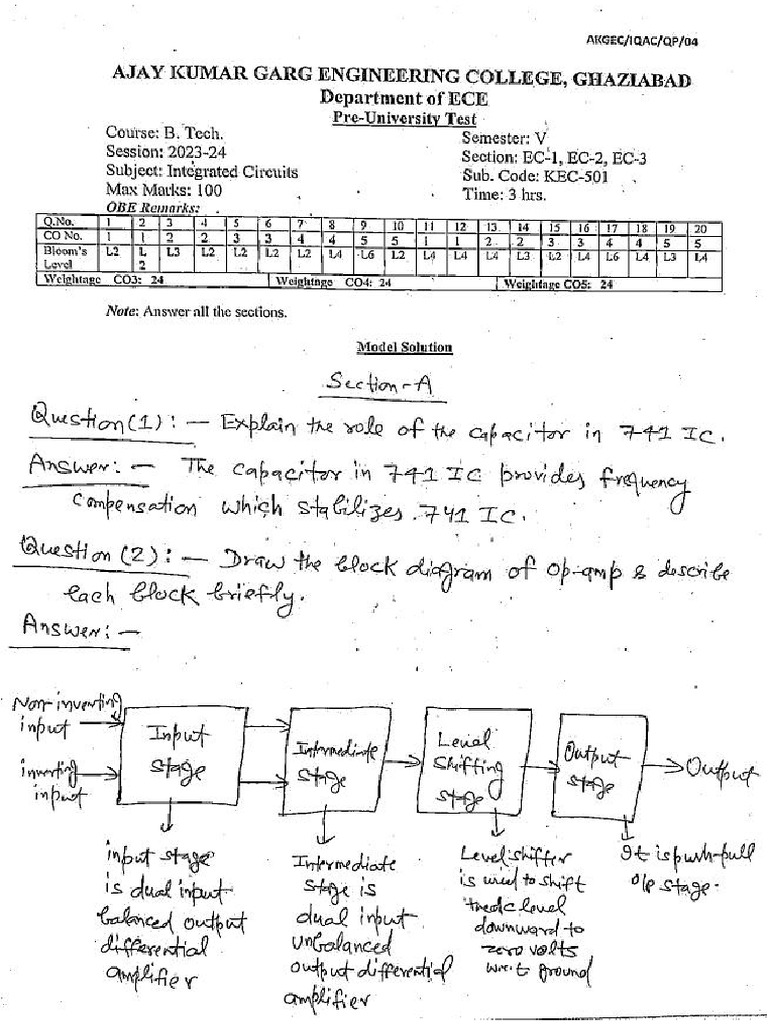 AKGEC/IQAC/QP/04
AJAY KUMAR GARG ENGINEERING COLLEGE, GHAZIABAD
Department of ECE
Pre-University Test
Course: B. Tech. Semester: V
Session: 2023-24 Section: EC-1, EC-2, EC-3
Subject: Integrated Circuits Sub. Code: KEC-501
Max Marks: 100 Time: 3 hrs.
OBE Remarks:
Q.No. 1 2 3 4 5 6 7 8 9 10 11 12 13 14 15 16 17 18 19 20
CO No. 1 1 2 2 3 3 4 4 5 5 1 1 2 2 3 3 4 4 5 5
Bloom's Level L2 L2 L3 L2 L2 L2 L2 L4 L6 L2 L4 L4 L4 L3 L2 L4 L6 L4 L3 L4
Weightage CO3: 24 Weightage CO4: 24 Weightage CO5: 24
Note: Answer all the sections.
Model Solution
Section-A
Question(1):- Explain the role of the capacitor in 741 IC.
Answer:- The capacitor in 741 IC provides frequency
compensation which stabilizes 741 IC.
Question(2):- Draw the block diagram of op-amp & describe
each block briefly.
Answer:-
Non-inverting
input
inverting
input
Input
stage
Intermediate
stage
Level
Shifting
stage
Output
stage
Output
input stage
is dual input
balanced output
differential
amplifier
Intermediate
stage is
dual input
unbalanced
output differential
amplifier
Level shifter
is used to shift
the dc level
downward to
zero volts
w.r.t ground
It is push-pull
o/p stage.